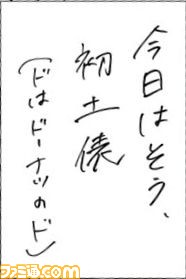 今日はそう、
初土俵
(ドはドーナツのド)
ファミ通.com